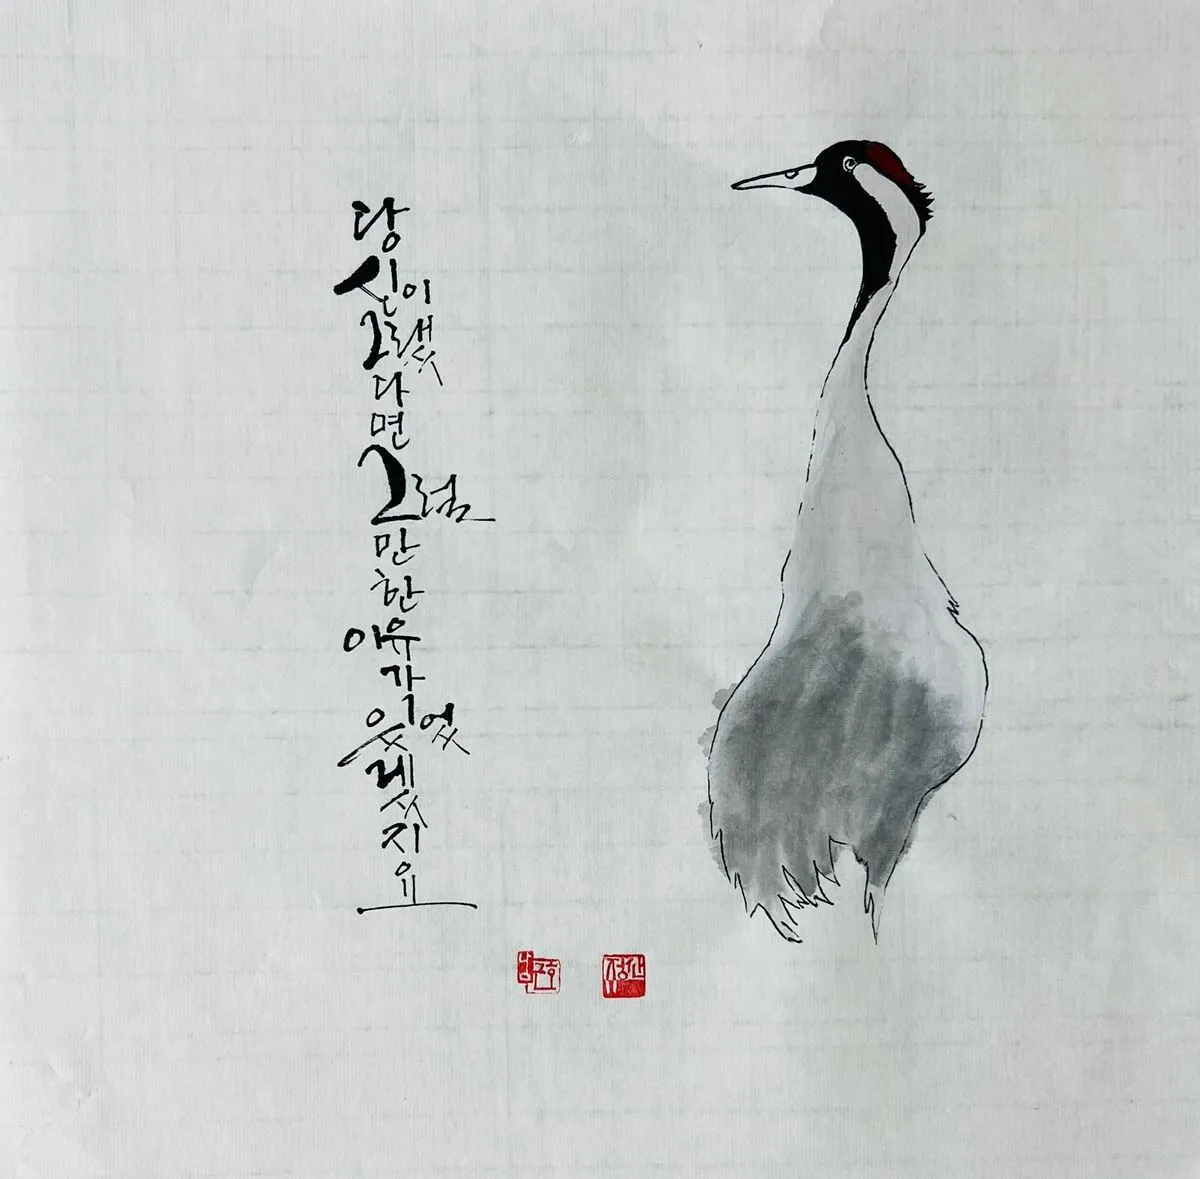 당
신이
그랬
다
면
그럴
만
한
이유
가
있었
겠
지
요